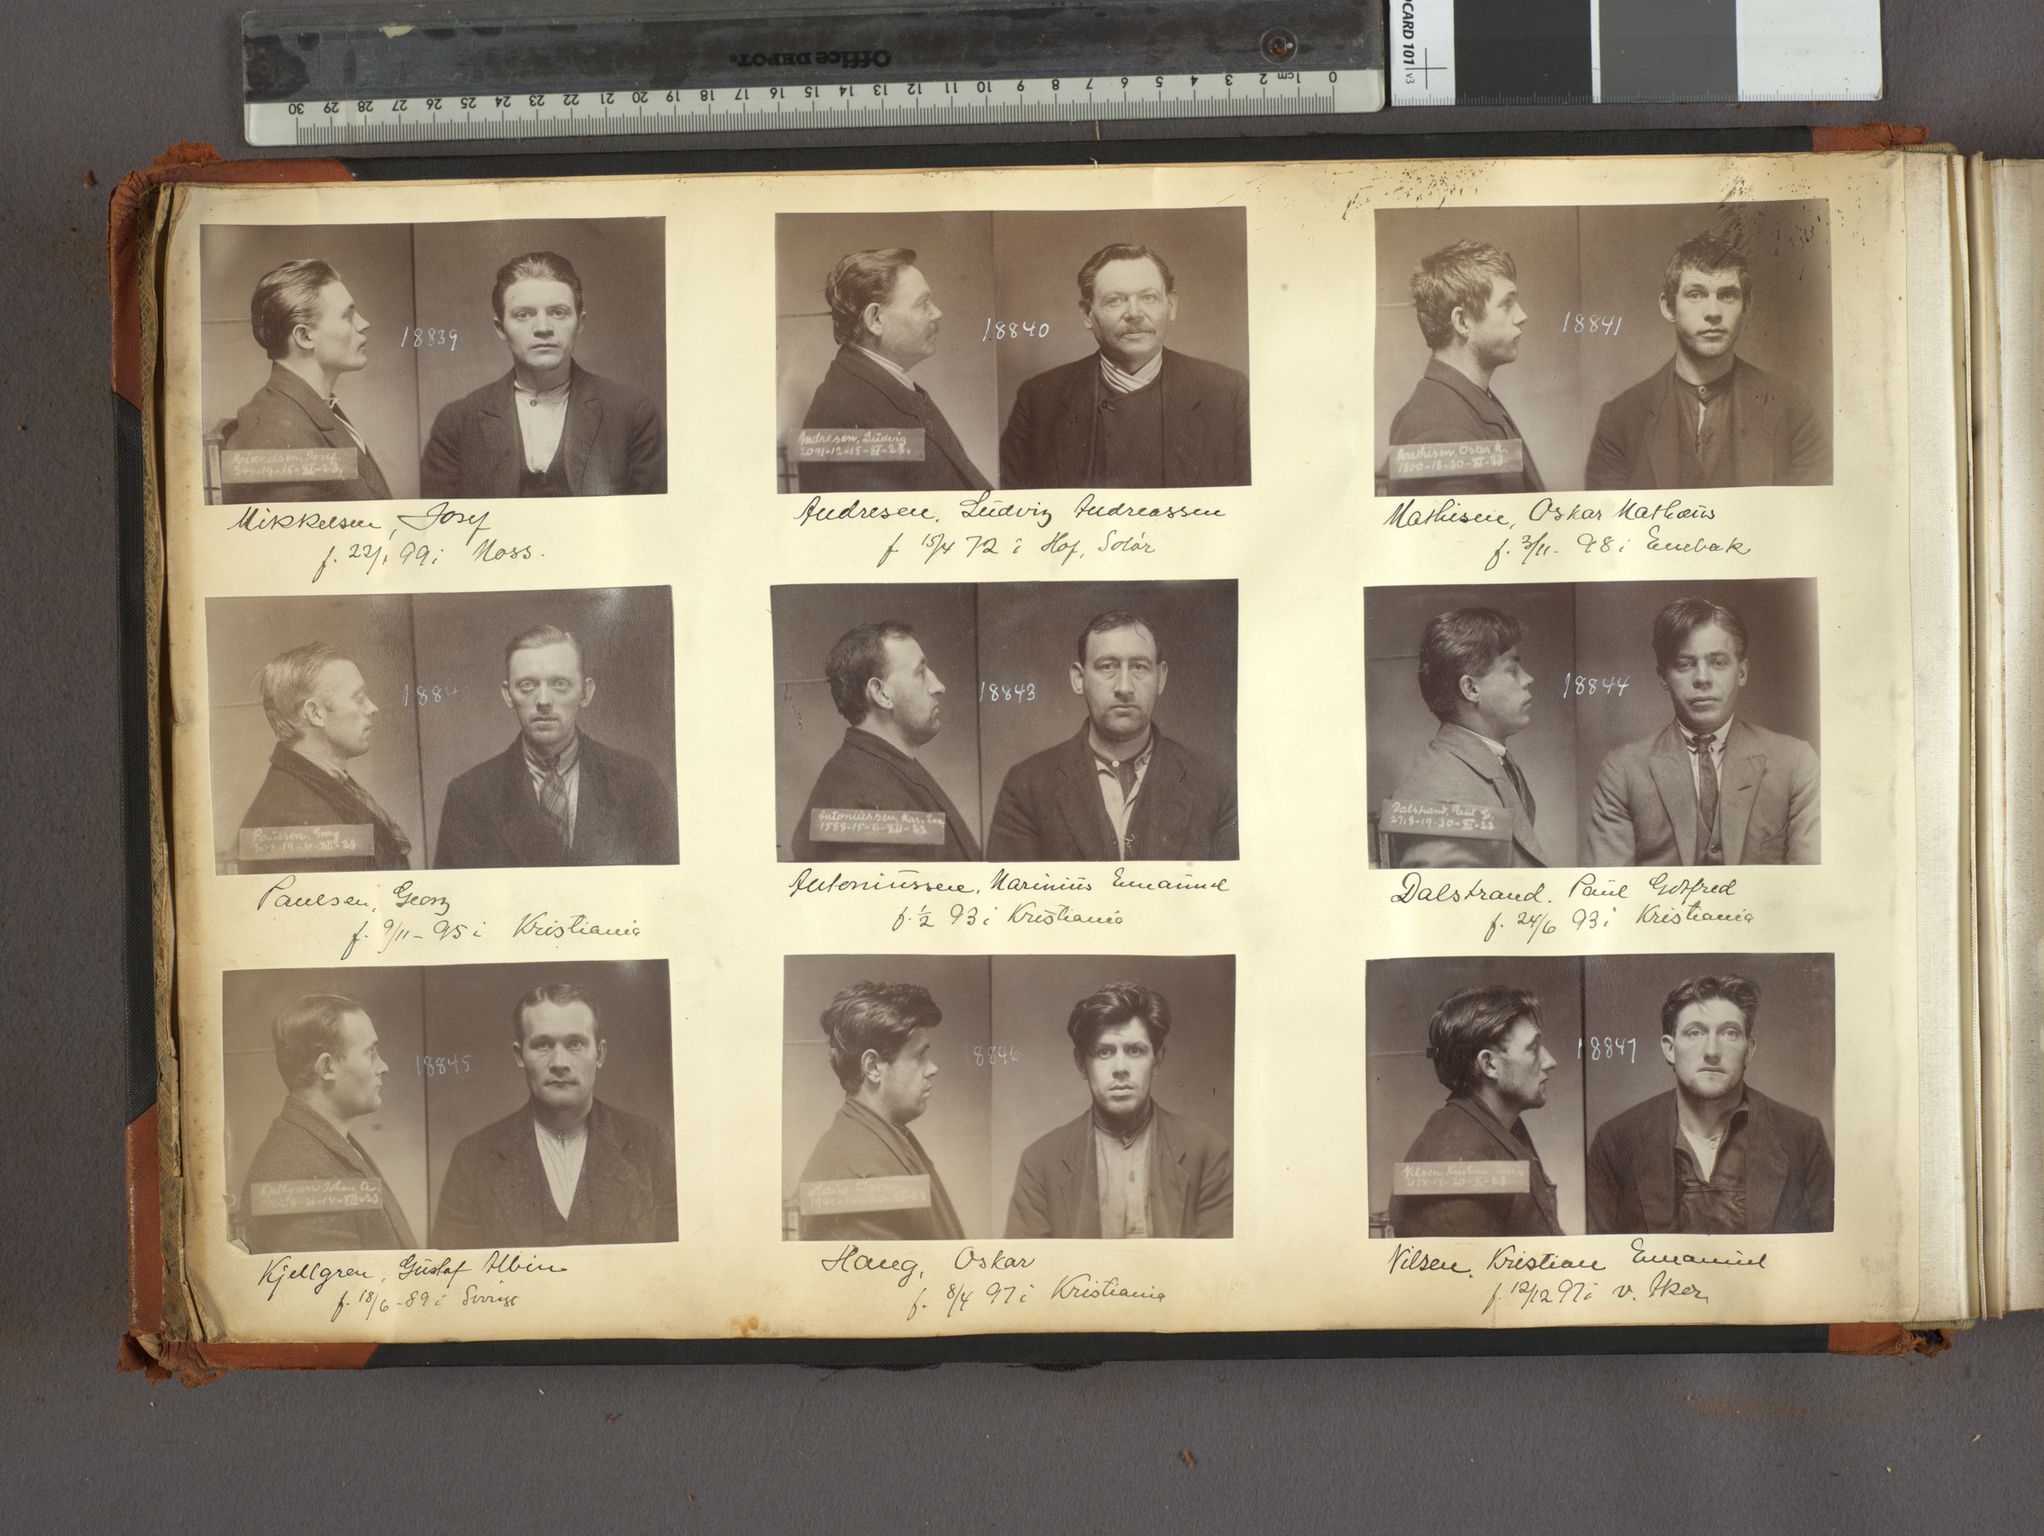 Office DEPOT.
0 1cm 2 3 4 5 6 7 8 9 10 11 12 13 14 15 16 17 18 19 20 21 22 23 24 25 26 27 28 29 30
OCARD 101 v3
18839
Mikkelsen, Josef.
Mikkelsen, Josef
f. 22/1 99 i Moss.
18840
Andresen, Ludvig
2091-12-15-XI-23,
Andresen, Ludvig Andreassen
f 15/4 72 i Hof, Solør
18841
Mathisen, Oskar M.
1800-18-30-XI-23
Mathisen, Oskar Mathæus
f. 3/11- 98 i Enebak
1884
Paulsen, Georg
303-19-6-XII-23
Paulsen, Georg
f. 9/11- 95 i Kristiania
18843
Antoniussen, Mar. Em.
1588-15-6-XII-23
Antoniussen, Marinius Emanuel
f. 1/2 93 i Kristiania
18844
Dalstrand, Paul G.
2718-19-30-XI-23
Dalstrand. Paul Gotfred
f. 24/6 93 i Kristiania
18845
Kjellgren Johan A.
Kjellgren, Gustaf Albin
f. 18/6-89 i Sverige
8846
Haug, Oskar
Haug, Oskar
f. 8/4 97 i Kristiania
18847
Nilsen Kristian Eman.
Nilsen, Kristian Emanuel
f. 12/12 97 i v. Aker